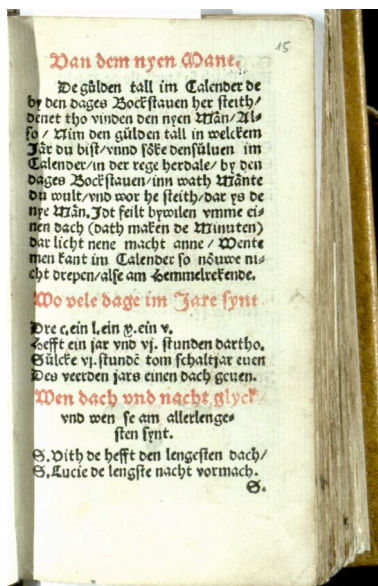 15
Van dem nyen Mane.
De gülden tall im Calender de
by den dages Bockstauen her steith/
denet tho vinden den nyen Mån/Al-
so / Nim den gülden tall in welckem
Jår du bist/vnnd söke densüluen im
Calender/in der rege herdale/ by den
dages Bockstauen/inn wath Månte
du wult/vnd wor he steith/dar ys de
nye Mån. Jdt feilt bywilen vmme ei-
nen dach (dath maken de Minuten)
dar licht nene macht anne / Wente
men kant im Calender so nöuwe ni-
cht drepen/alse am Hemmelrekende.
Wo vele dage im Jare synt
Dre c.ein l.ein x.ein v.
Hefft ein jar vnd vj. stunden dartho.
Sülcke vj.stundē tom schaltjar euen
Des veerden jars einen dach geuen.
Wen dach vnd nacht glyck/
vnd wen se am allerlenge-
sten synt.
S.Vith de hefft den lengesten dach/
S.Lucie de lengste nacht vormach.
S.